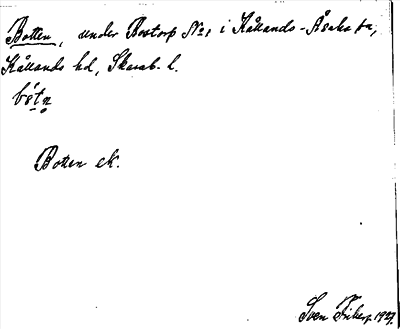 Botten, under Bostorp No 1 i Kållands-Åsaka sn,
Kållands hd, Skarab. l.
Botten ek.
Sven Friberg 1927.